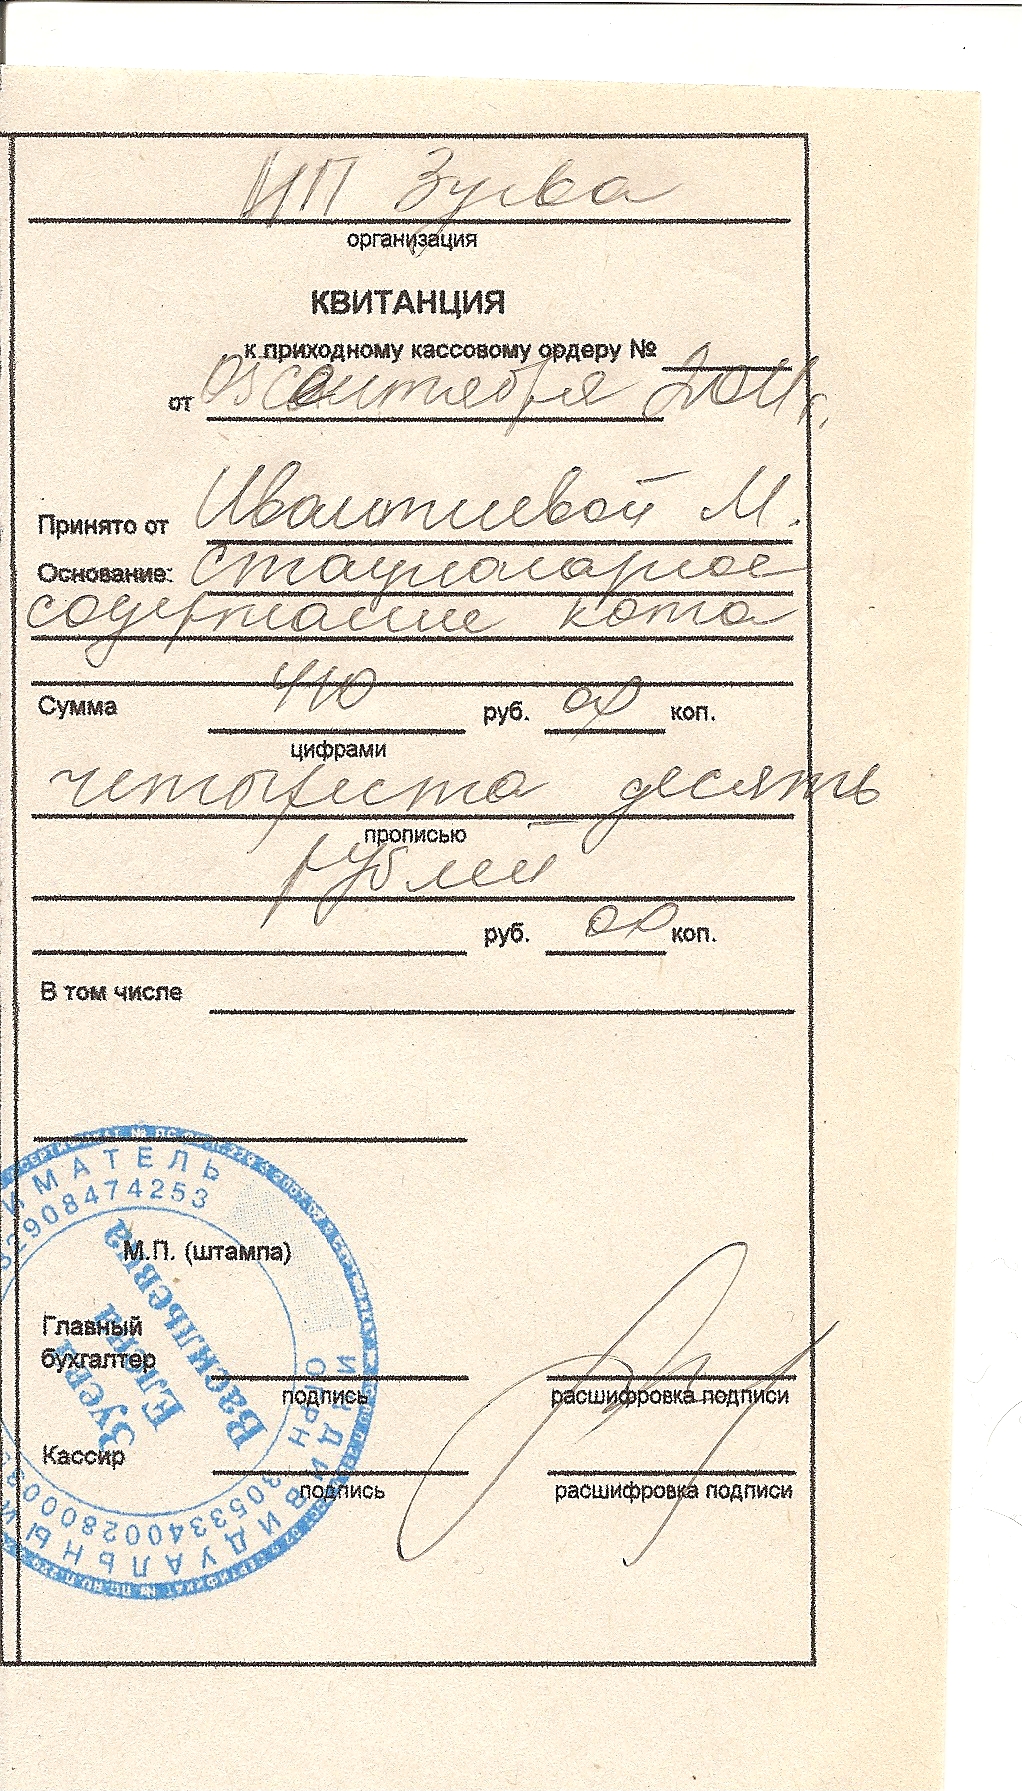 ИП Зуева
организация
КВИТАНЦИЯ
к приходному кассовому ордеру №
от 05 сентября 2011 г.
Принято от Ивантиевой М.
Основание: стационарное
содержание кота
Сумма 410 руб. 00 коп.
цифрами
четыреста десять
прописью
рублей
руб. 00 коп.
В том числе
М.П. (штампа)
Главный
бухгалтер
подпись расшифровка подписи
Кассир
подпись расшифровка подписи
ИМАТЕЛЬ
2908474253
Зуева
Елена
Васильевна
ИНДИВИДУАЛЬНЫЙ
ОГРН 3053340028000